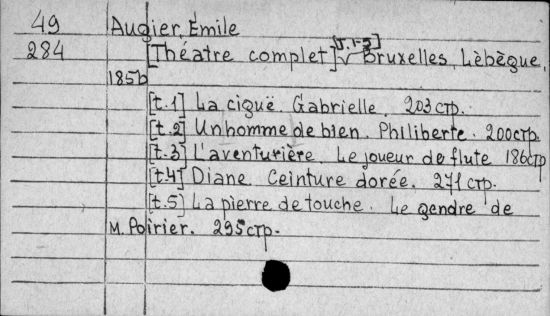 49 Augier, Émile
284 [Théatre complet] [T.1-5] Bruxelles, Lèbègue,
1856
[t.1] La ciguë. Gabrielle. 203 стр.
[t.2] Un homme de bien. Philiberte. 200 стр
[t.3] L'aventurière. Le joueur de flute 186 стр
[t.4] Diane. Ceinture dorée. 271 стр.
[t.5] La pierre de touche. Le gendre de
M. Poirier. 295 стр.